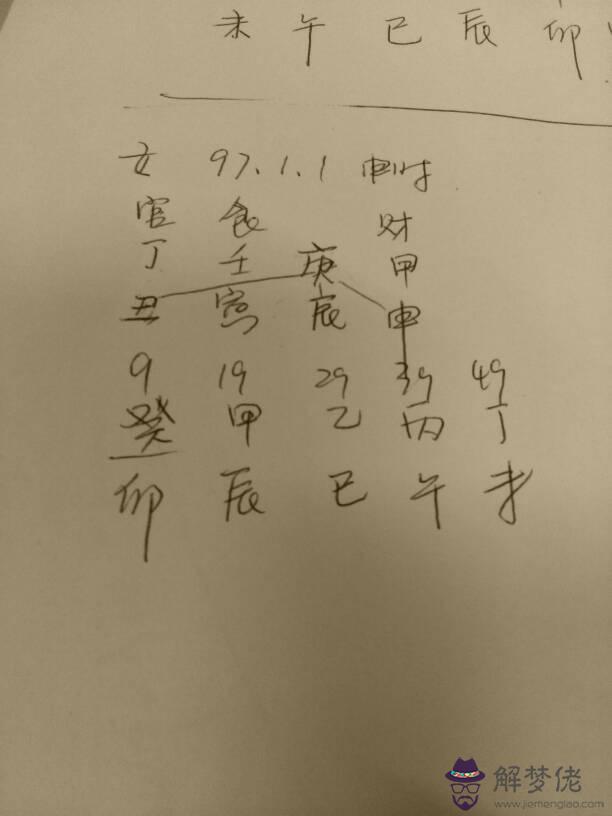 未 午 巳 辰 卯
女 97.1.1 申时
官 食 财
丁 壬 庚 甲
丑 寅 辰 申
9 19 29 39 49
癸 甲 乙 丙 丁
卯 辰 巳 午 未
解梦佬
www.jiemenglao.com